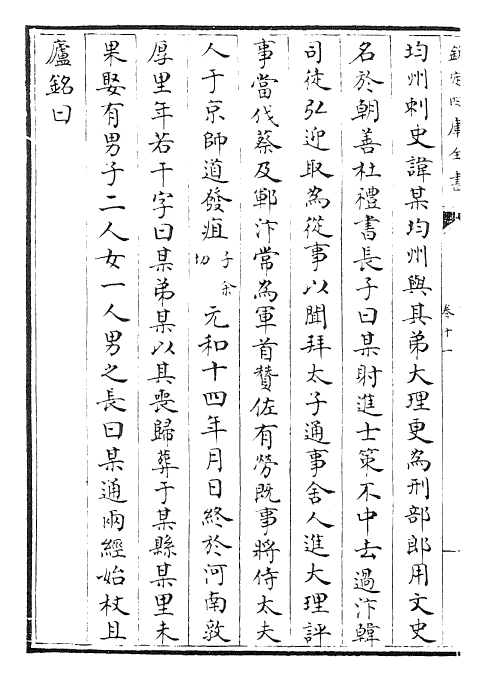 欽定四庫全書
卷十一
均州刺史諱某均州與其弟大理更為刑部郎用文史
名於朝善杜禮書長子曰某射進士策不中去過汴韓
司徒弘迎取為從事以聞拜太子通事舍人進大理評
事當伐蔡及鄆汴常為軍首贊佐有勞既事將侍太夫
人于京師道發疽子余切元和十四年月日終於河南敦
厚里年若干字曰某弟某以其喪歸葬于某縣某里未
果娶有男子二人女一人男之長曰某通兩經始杖且
廬銘曰